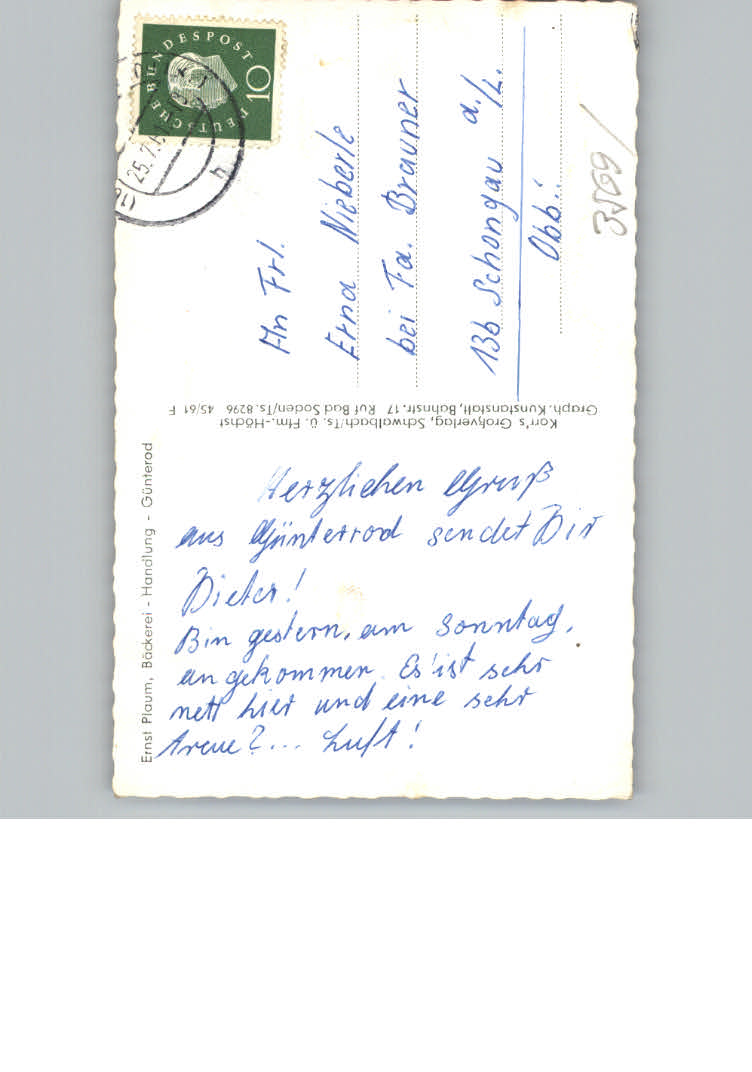 DEUTSCHE BUNDESPOST
10
25.7.
An Frl.
Erna Nieberle
bei Fa. Brauner
13b Schongau a./L.
Obb.
Korr's Großverlag, Schwalbach/Ts. ü. Ffm.-Höchst
Graph. Kunstanstalt, Bahnstr. 17 Ruf Bad Soden/Ts. 8296 45/61 F
Ernst Plaum, Bäckerei - Handlung - Günterod
Herzlichen Gruß
aus Günterrod sendet Dir
Dieter!
Bin gestern, am Sonntag,
angekommen. Es ist sehr
nett hier und eine sehr
treue?... Luft!